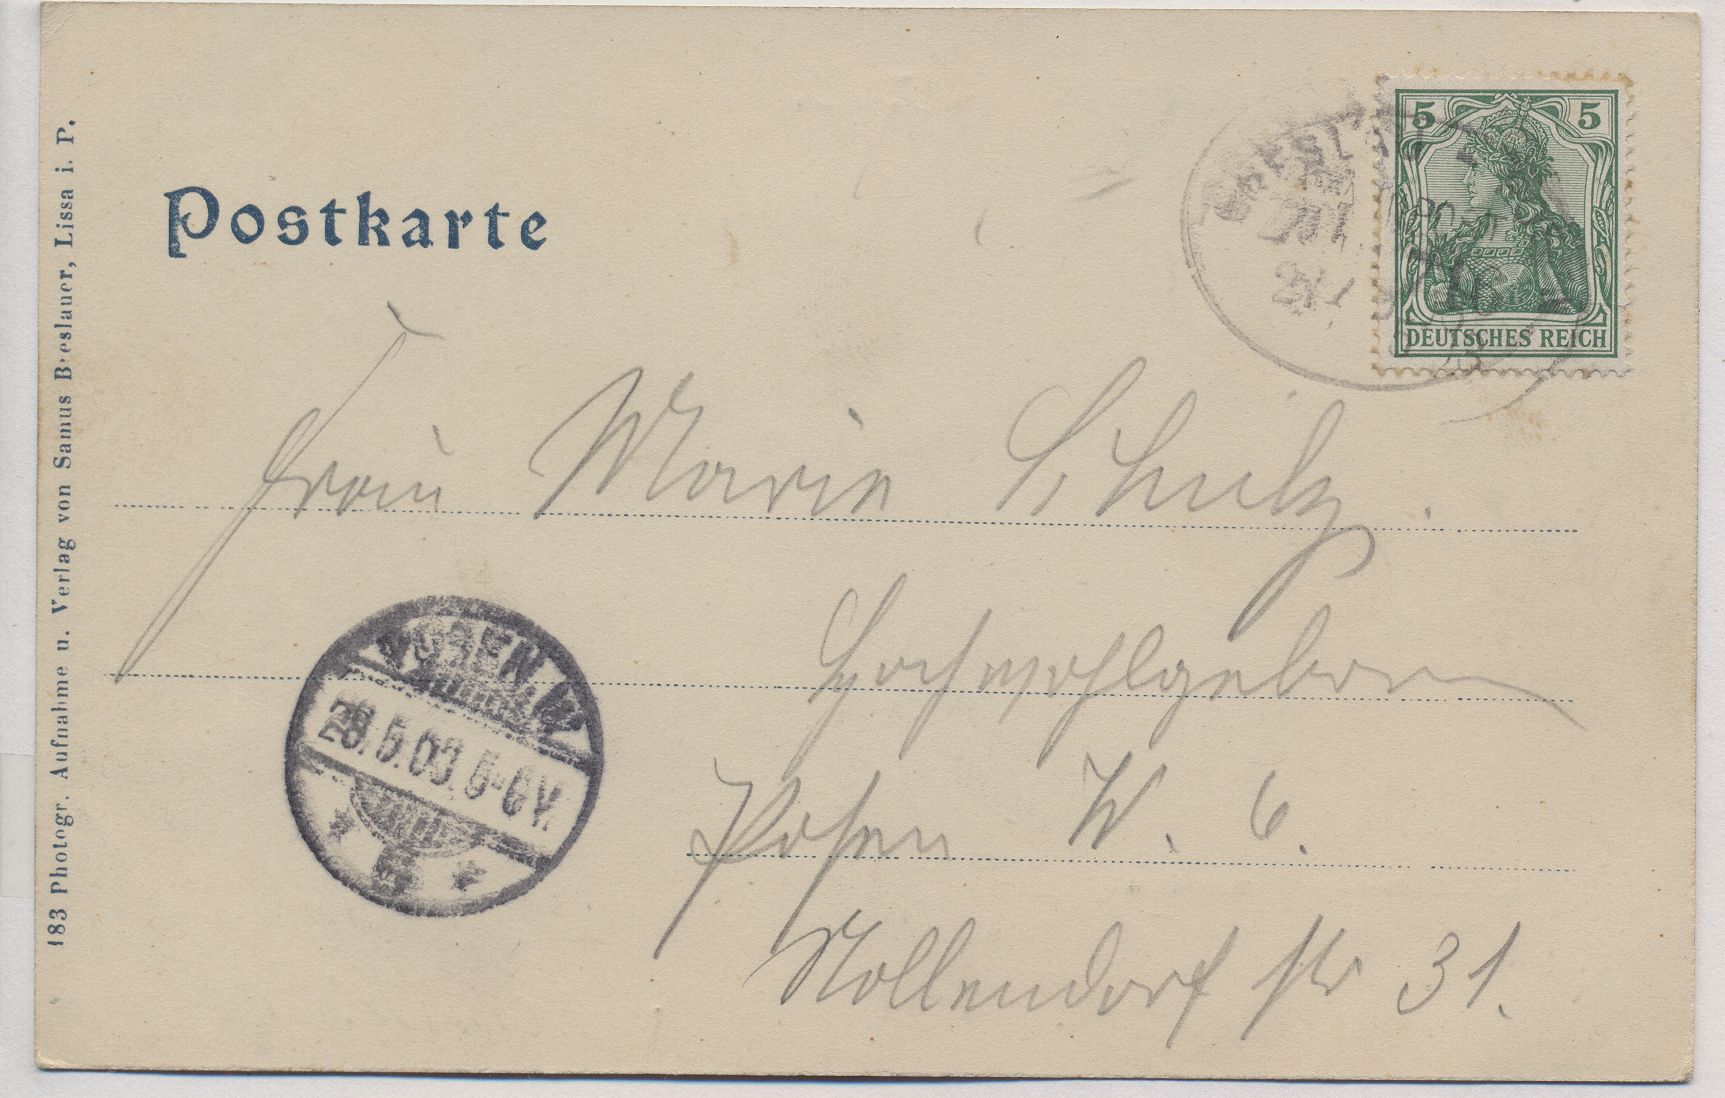 183 Photogr. Aufnahme u. Verlag von Samus Breslauer, Lissa i. P.
Postkarte
5 5
DEUTSCHES REICH
Frau Marie Schulz.
Hochwohlgeboren
Posen W. 6.
Nollendorf str 31.
POSEN W
5-6V.